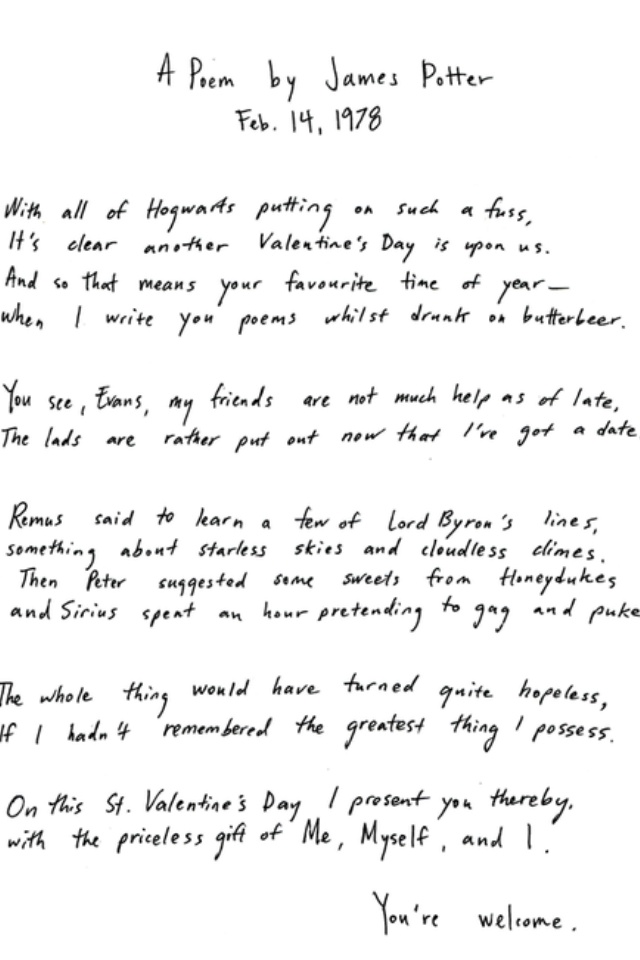 A Poem by James Potter
Feb. 14, 1978
With all of Hogwarts putting on such a fuss,
It's clear another Valentine's Day is upon us.
And so that means your favourite time of year—
when I write you poems whilst drunk on butterbeer.
You see, Evans, my friends are not much help as of late,
The lads are rather put out now that I've got a date
Remus said to learn a few of Lord Byron's lines,
something about starless skies and cloudless climes.
Then Peter suggested some sweets from Honeydukes
and Sirius spent an hour pretending to gag and puke
The whole thing would have turned quite hopeless,
If I hadn't remembered the greatest thing I possess.
On this St. Valentine's Day I present you thereby,
with the priceless gift of Me, Myself, and I.
You're welcome.